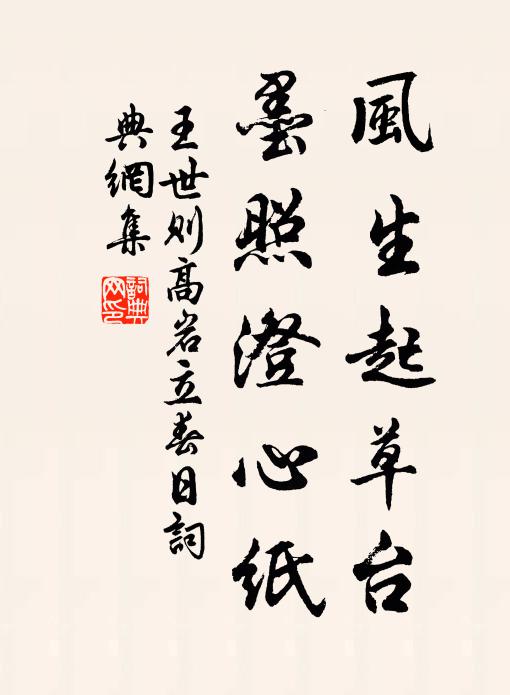 風生起草台
墨照澄心紙
王世則高岩立春日詞
典網集
詞典
网印